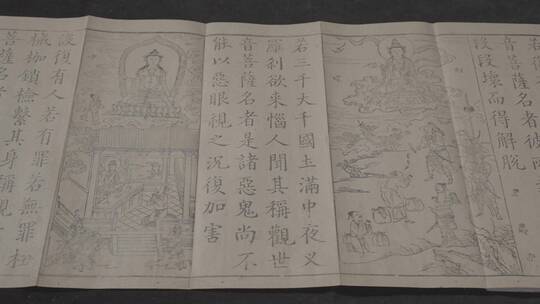 若復
音菩薩名者彼所
段段壞而得解脫
若三千大千國土滿中夜叉
羅剎欲來惱人聞其稱觀世
音菩薩名者是諸惡鬼尚不
能以惡眼視之況復加害
設復有人若有罪若無罪杻
械枷鎖檢繫其身稱觀
菩薩名者